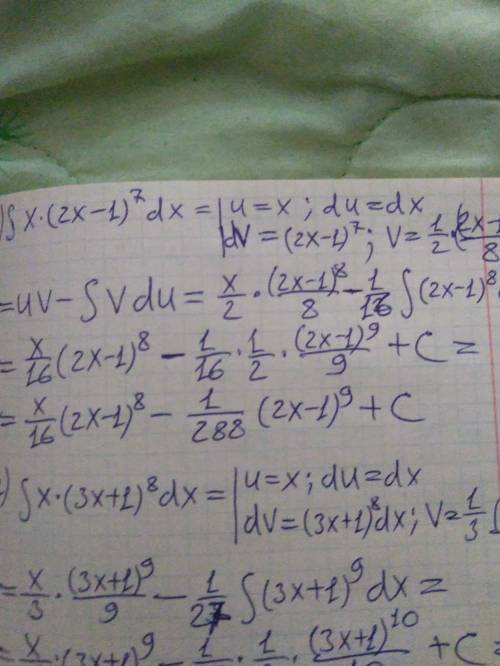 )∫x·(2x−1)⁷dx = | u=x ; du=dx
| dV=(2x−1)⁷; V=1/2·(2x−1/8
=uV−∫Vdu= x/2·(2x−1)⁸/8−1/16∫(2x−1)⁸
= x/16(2x−1)⁸ − 1/16·1/2·(2x−1)⁹/9+C=
= x/16(2x−1)⁸ − 1/288(2x−1)⁹+C
)∫x·(3x+1)⁸dx = | u=x; du=dx
| dV=(3x+1)⁸dx; V=1/3
= x/3·(3x+1)⁹/9 − 1/27∫(3x+1)⁹dx=
= x/ ·(3x+1)⁹ − 1/ ·1/ ·(3x+1)¹⁰/ +C=